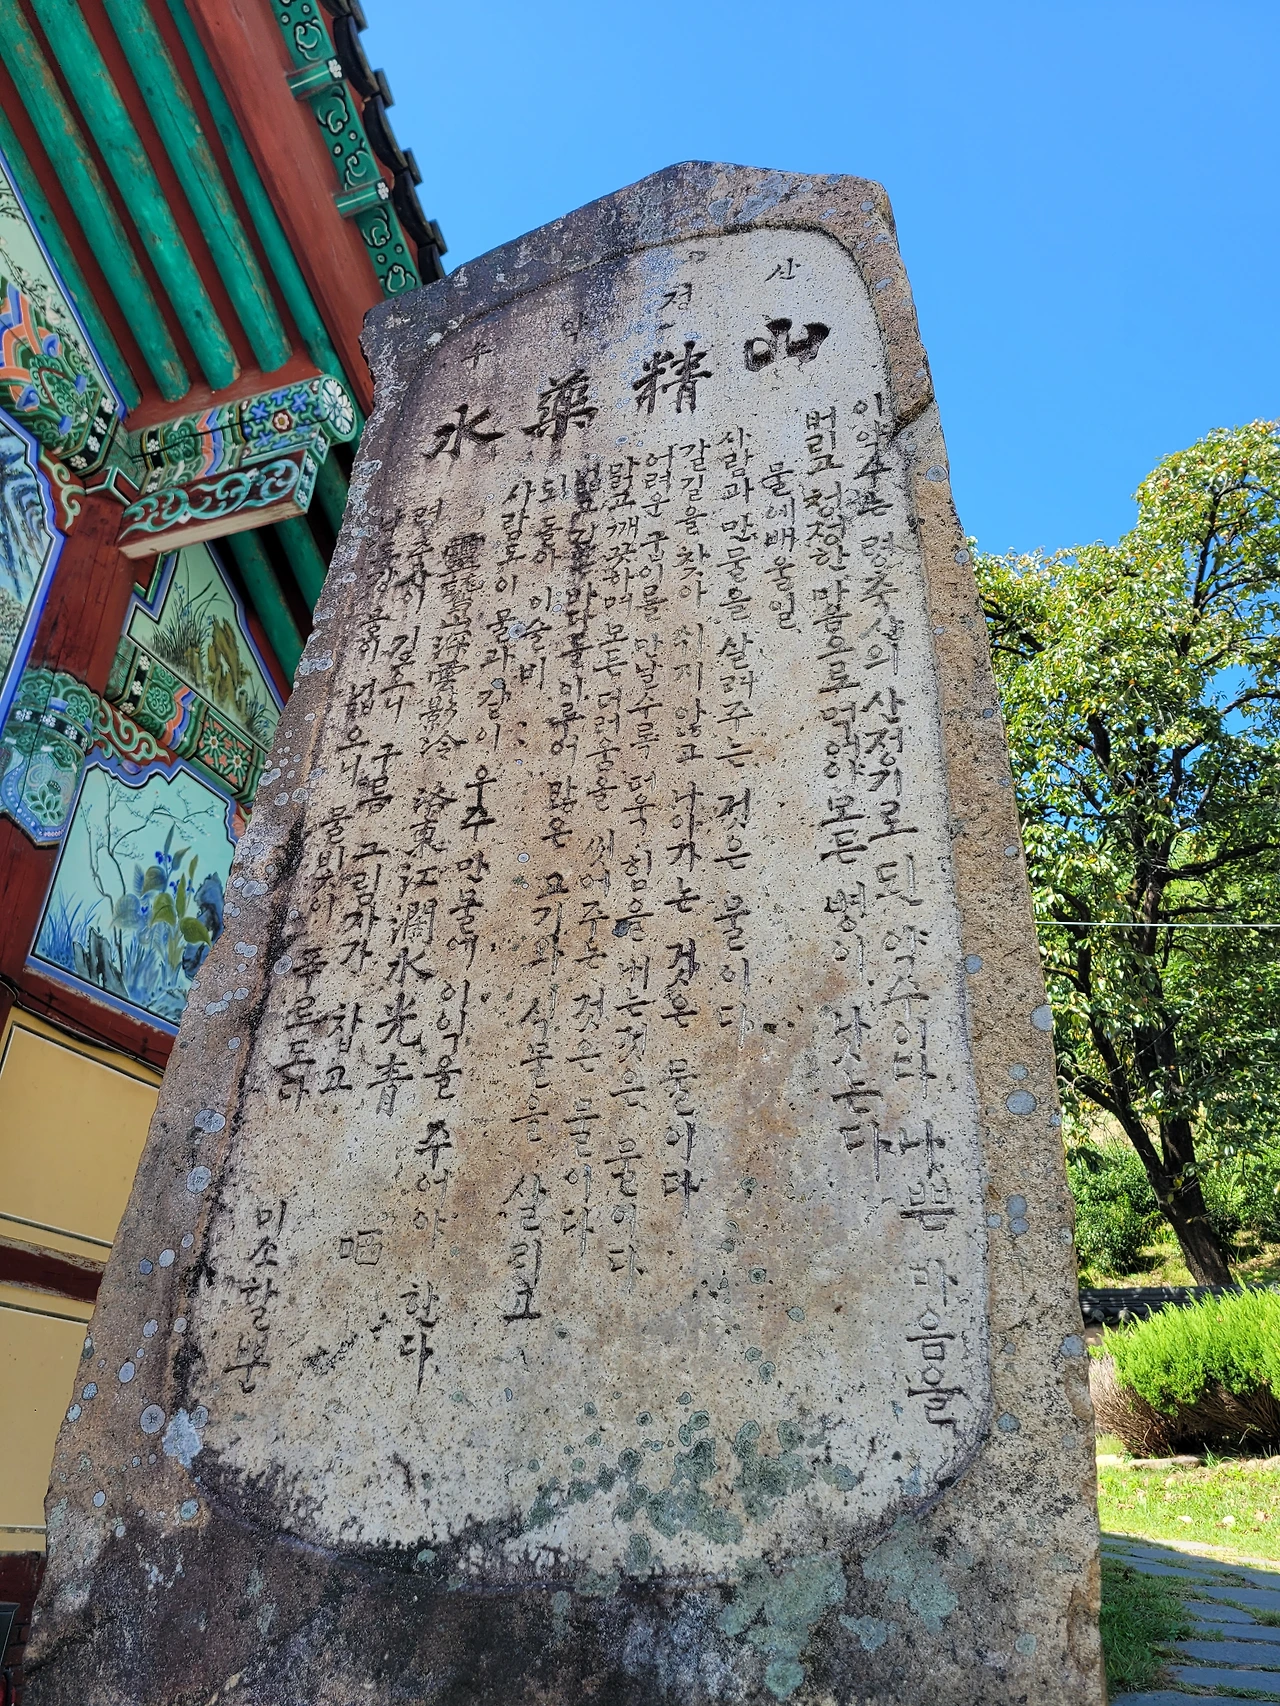 산정약수
山精藥水
이약수는 령축산의 산정기로 된 약수이다 나쁜 마음을
버리고 청정한 마음으로 먹어야 모든 병이 낫는다
물에배울일
사람과 만물을 살려주는 것은 물이다
갈길을 찾아 쉬지않고 나아가는 것은 물이다
어려운 구비를 만날수록 더욱 힘을 내는것은 물이다
맑고 깨끗하며 모든 더러움을 씻어주는 것은 물이다
넓고깊은 바다를 이루어 많은 고기와 식물을 살리고
되돌아 이슬비
사람도 이 물과 같이 우주만물에 이익을 주어야 한다
靈鷲山深雲影冷 洛東江濶水光靑
령축산이 깊으니 구름 그림자가 찹고
낙동강물이 넓으니 물빛이 푸르도다
哂
미소할뿐